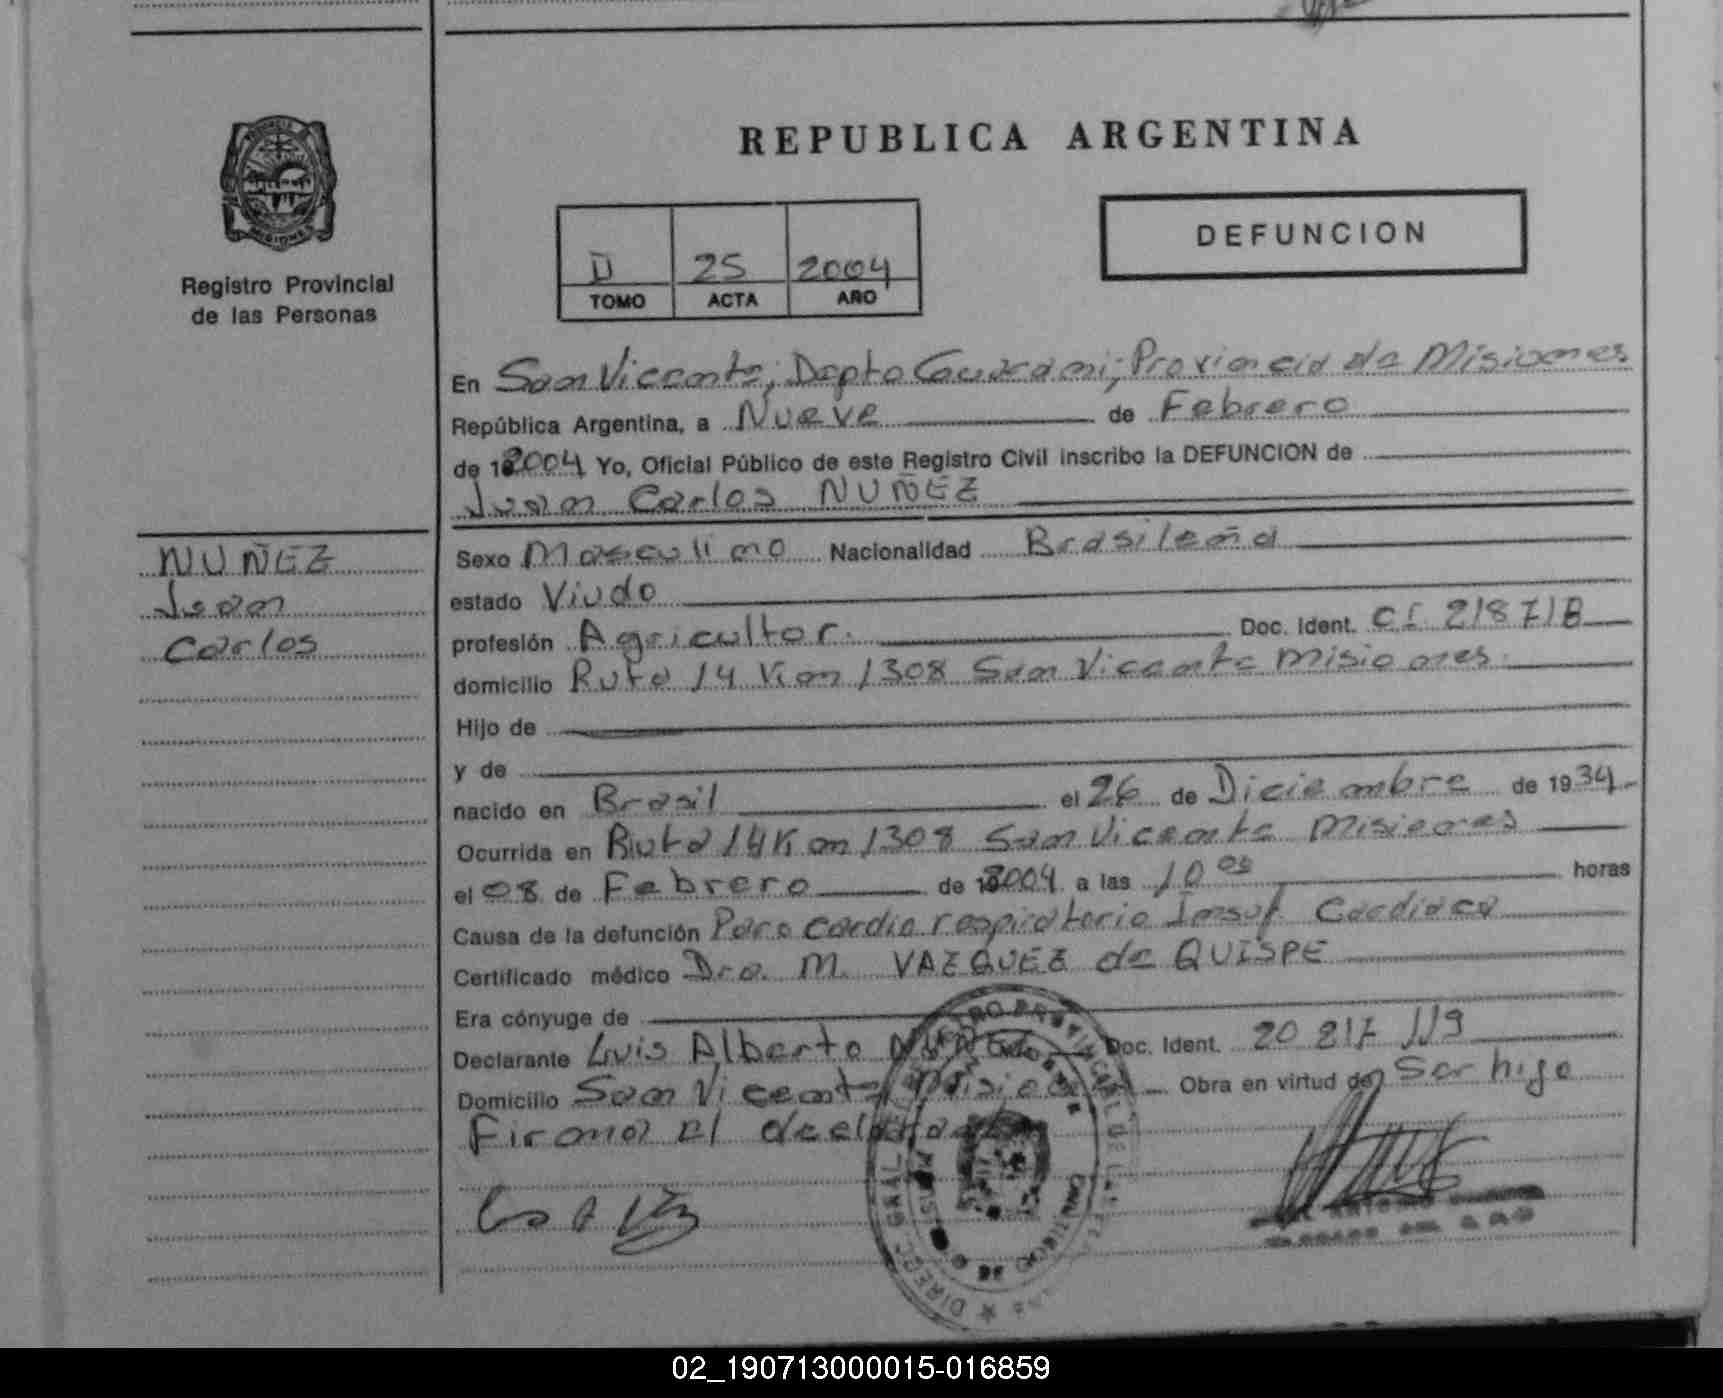 REPUBLICA ARGENTINA
PROVINCIA
MISIONES
Registro Provincial
de las Personas
D 25 2004
TOMO ACTA AÑO
DEFUNCION
En San Vicente, Depto Guarani; Provincia de Misiones
República Argentina, a Nueve de Febrero
de 2004 Yo, Oficial Público de este Registro Civil inscribo la DEFUNCION de
Juan Carlos NUÑEZ
NUÑEZ
Juan
Carlos
Sexo Masculino Nacionalidad Brasileña
estado Viudo
profesión Agricultor. Doc. Ident. CI 218718
domicilio Ruta 14 Km 1308 San Vicente Misiones.
Hijo de
y de
nacido en Brasil el 26 de Diciembre de 1934
Ocurrida en Ruta 14 Km 1308 San Vicente Misiones
el 08 de Febrero de 2004 a las 10 00 horas
Causa de la defunción Paro cardio respiratorio Insuf. Cardiaca
Certificado médico Dra. M. VAZQUEZ de QUISPE
Era cónyuge de
Declarante Luis Alberto NUÑEZ Doc. Ident. 20 217 119
Domicilio San Vicente Misiones Obra en virtud de Ser hijo
Firma el declarante
02_190713000015-016859